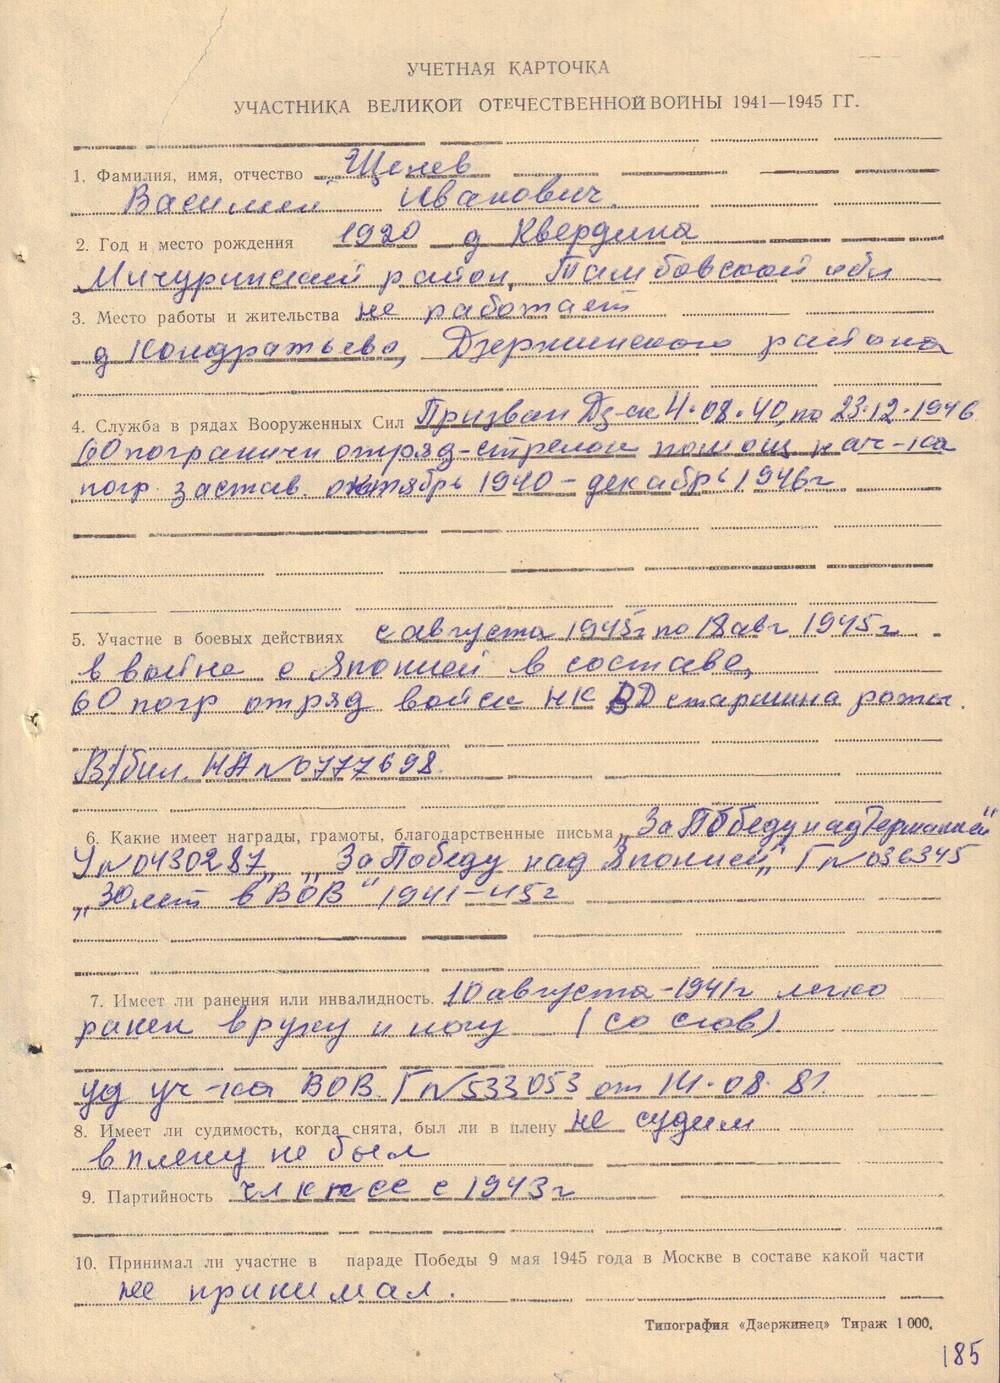 УЧЕТНАЯ КАРТОЧКА
УЧАСТНИКА ВЕЛИКОЙ ОТЕЧЕСТВЕННОЙ ВОЙНЫ 1941—1945 ГГ.
1. Фамилия, имя, отчество Щенев
Василий Иванович.
2. Год и место рождения 1920 д Квердина
Мичуринский район, Тамбовской обл
3. Место работы и жительства не работает
д Кондратьево, Дзержинского района
4. Служба в рядах Вооруженных Сил Призван Дз-ск 4.08.40, по 23.12.1946
60 погранични отряд-стрелок помощ нач-ка
погр. застав. октябрь 1940 – декабрь 1946г
5. Участие в боевых действиях с августа 1945г по 18 авг 1945г
в войне с Японией в составе,
60 погр отряд войск НКВД старшина роты.
В/бил. НА №0777698.
6. Какие имеет награды, грамоты, благодарственные письма „За Победу над Германией"
У №0430287„ „За Победу над Японией„ Г №036345
„30 лет в ВОВ" 1941–45г
7. Имеет ли ранения или инвалидность. 10 августа-1941г легко
ранен в руку и ногу (со слов)
уд уч-ка ВОВ. Г №533053 от 14.08.81
8. Имеет ли судимость, когда снята, был ли в плену не судим
в плену не был
9. Партийность чл кпсс с 1943г
10. Принимал ли участие в параде Победы 9 мая 1945 года в Москве в составе какой части
не принимал.
Типография «Дзержинец» Тираж 1 000.
185